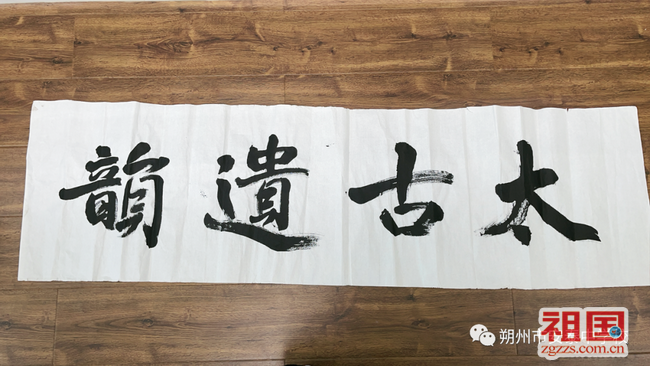 太古遺韻
朔州市
祖国
zgzzs.com.cn